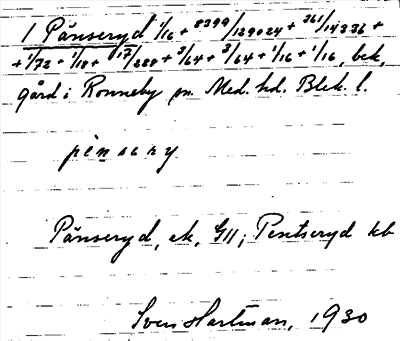 1 Pänseryd 1/16 + 8399/129024 + 361/14336 +
+ 1/72 + 1/18 + 15/288 + 3/64 + 3/64 + 1/16 + 1/16, bek,
gård i Ronneby sn. Med. hd. Blek. l.
pẹ̀nsəry
Pänseryd, ek, GII; Pentseryd kb
Sven Hartman, 1930